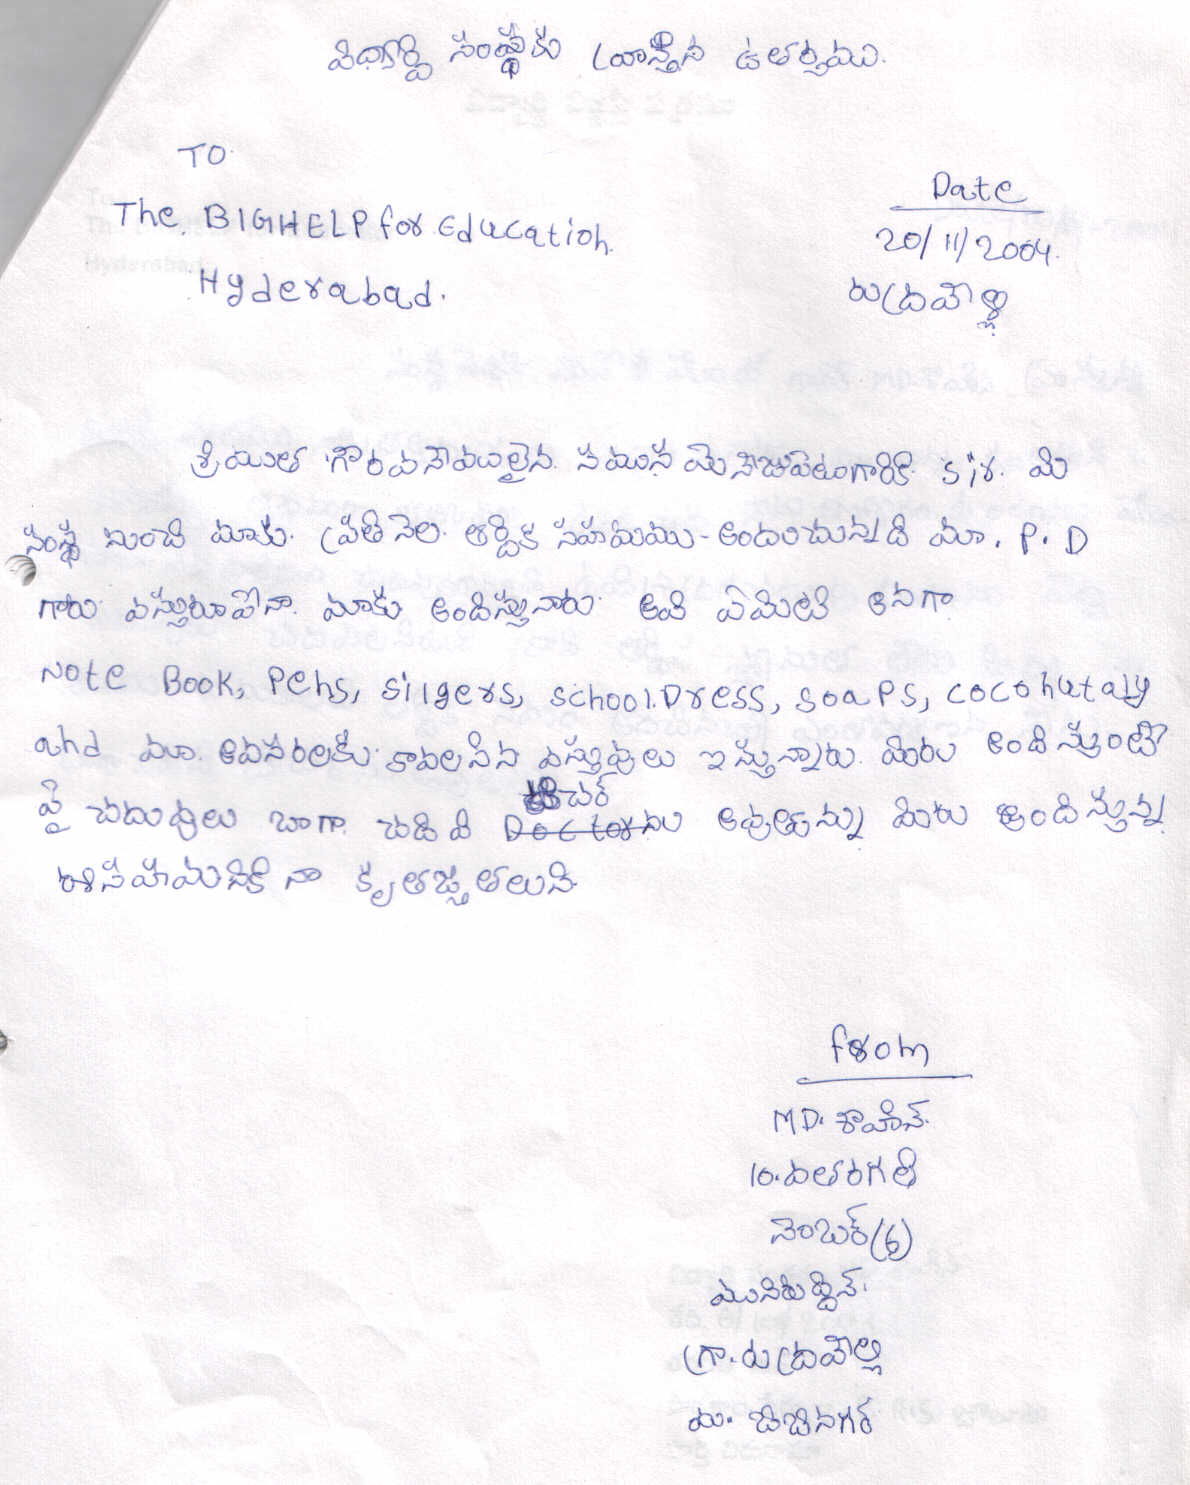 విధికార్పి సంస్థకు వ్రాస్తున ఉతర్తము.
TO
The. BIGHELP for Education.
Hyderabad.
Date
20/11/2004.
రుద్రవెళ్లి
శ్రీయుత గౌరవనీవయులైన. సమున sir. మి
సంస్థ నుంచి మాకు. ప్రతి నెల. ఆర్దిక సహమము - అందించున్నది మా. P. D
గారు వస్తురూపేనా. మాకు అందిస్తునారు అవి ఏమిటి అనగా
Note Book, Pens, silgers, school.Dress, soaps, coconutaly
and మా. అవసరలకు కావలసిన వస్తువులు ఇస్తున్నారు. మీరు అందిస్తుంటే
పై చదువులు బాగా. చదివి టీచర్ Doctorను అవుతాను మీరు అందిస్తున్న
ఈ సహమనికి నా కృతజ్ఞతలుని
from
MD. శాహీన్.
10.వతరగతి
నెంబర్(6)
మునిరుద్దిన్.
గ్రా. రుద్రవెల్లి
మ. బిబినగర్